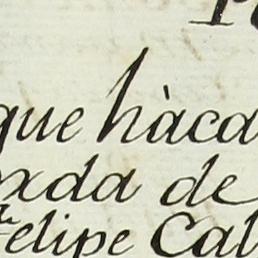 que hàca
xda de
Felipe Cal